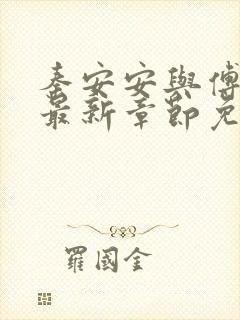 秦安安與傅
最新章節免
羅國金